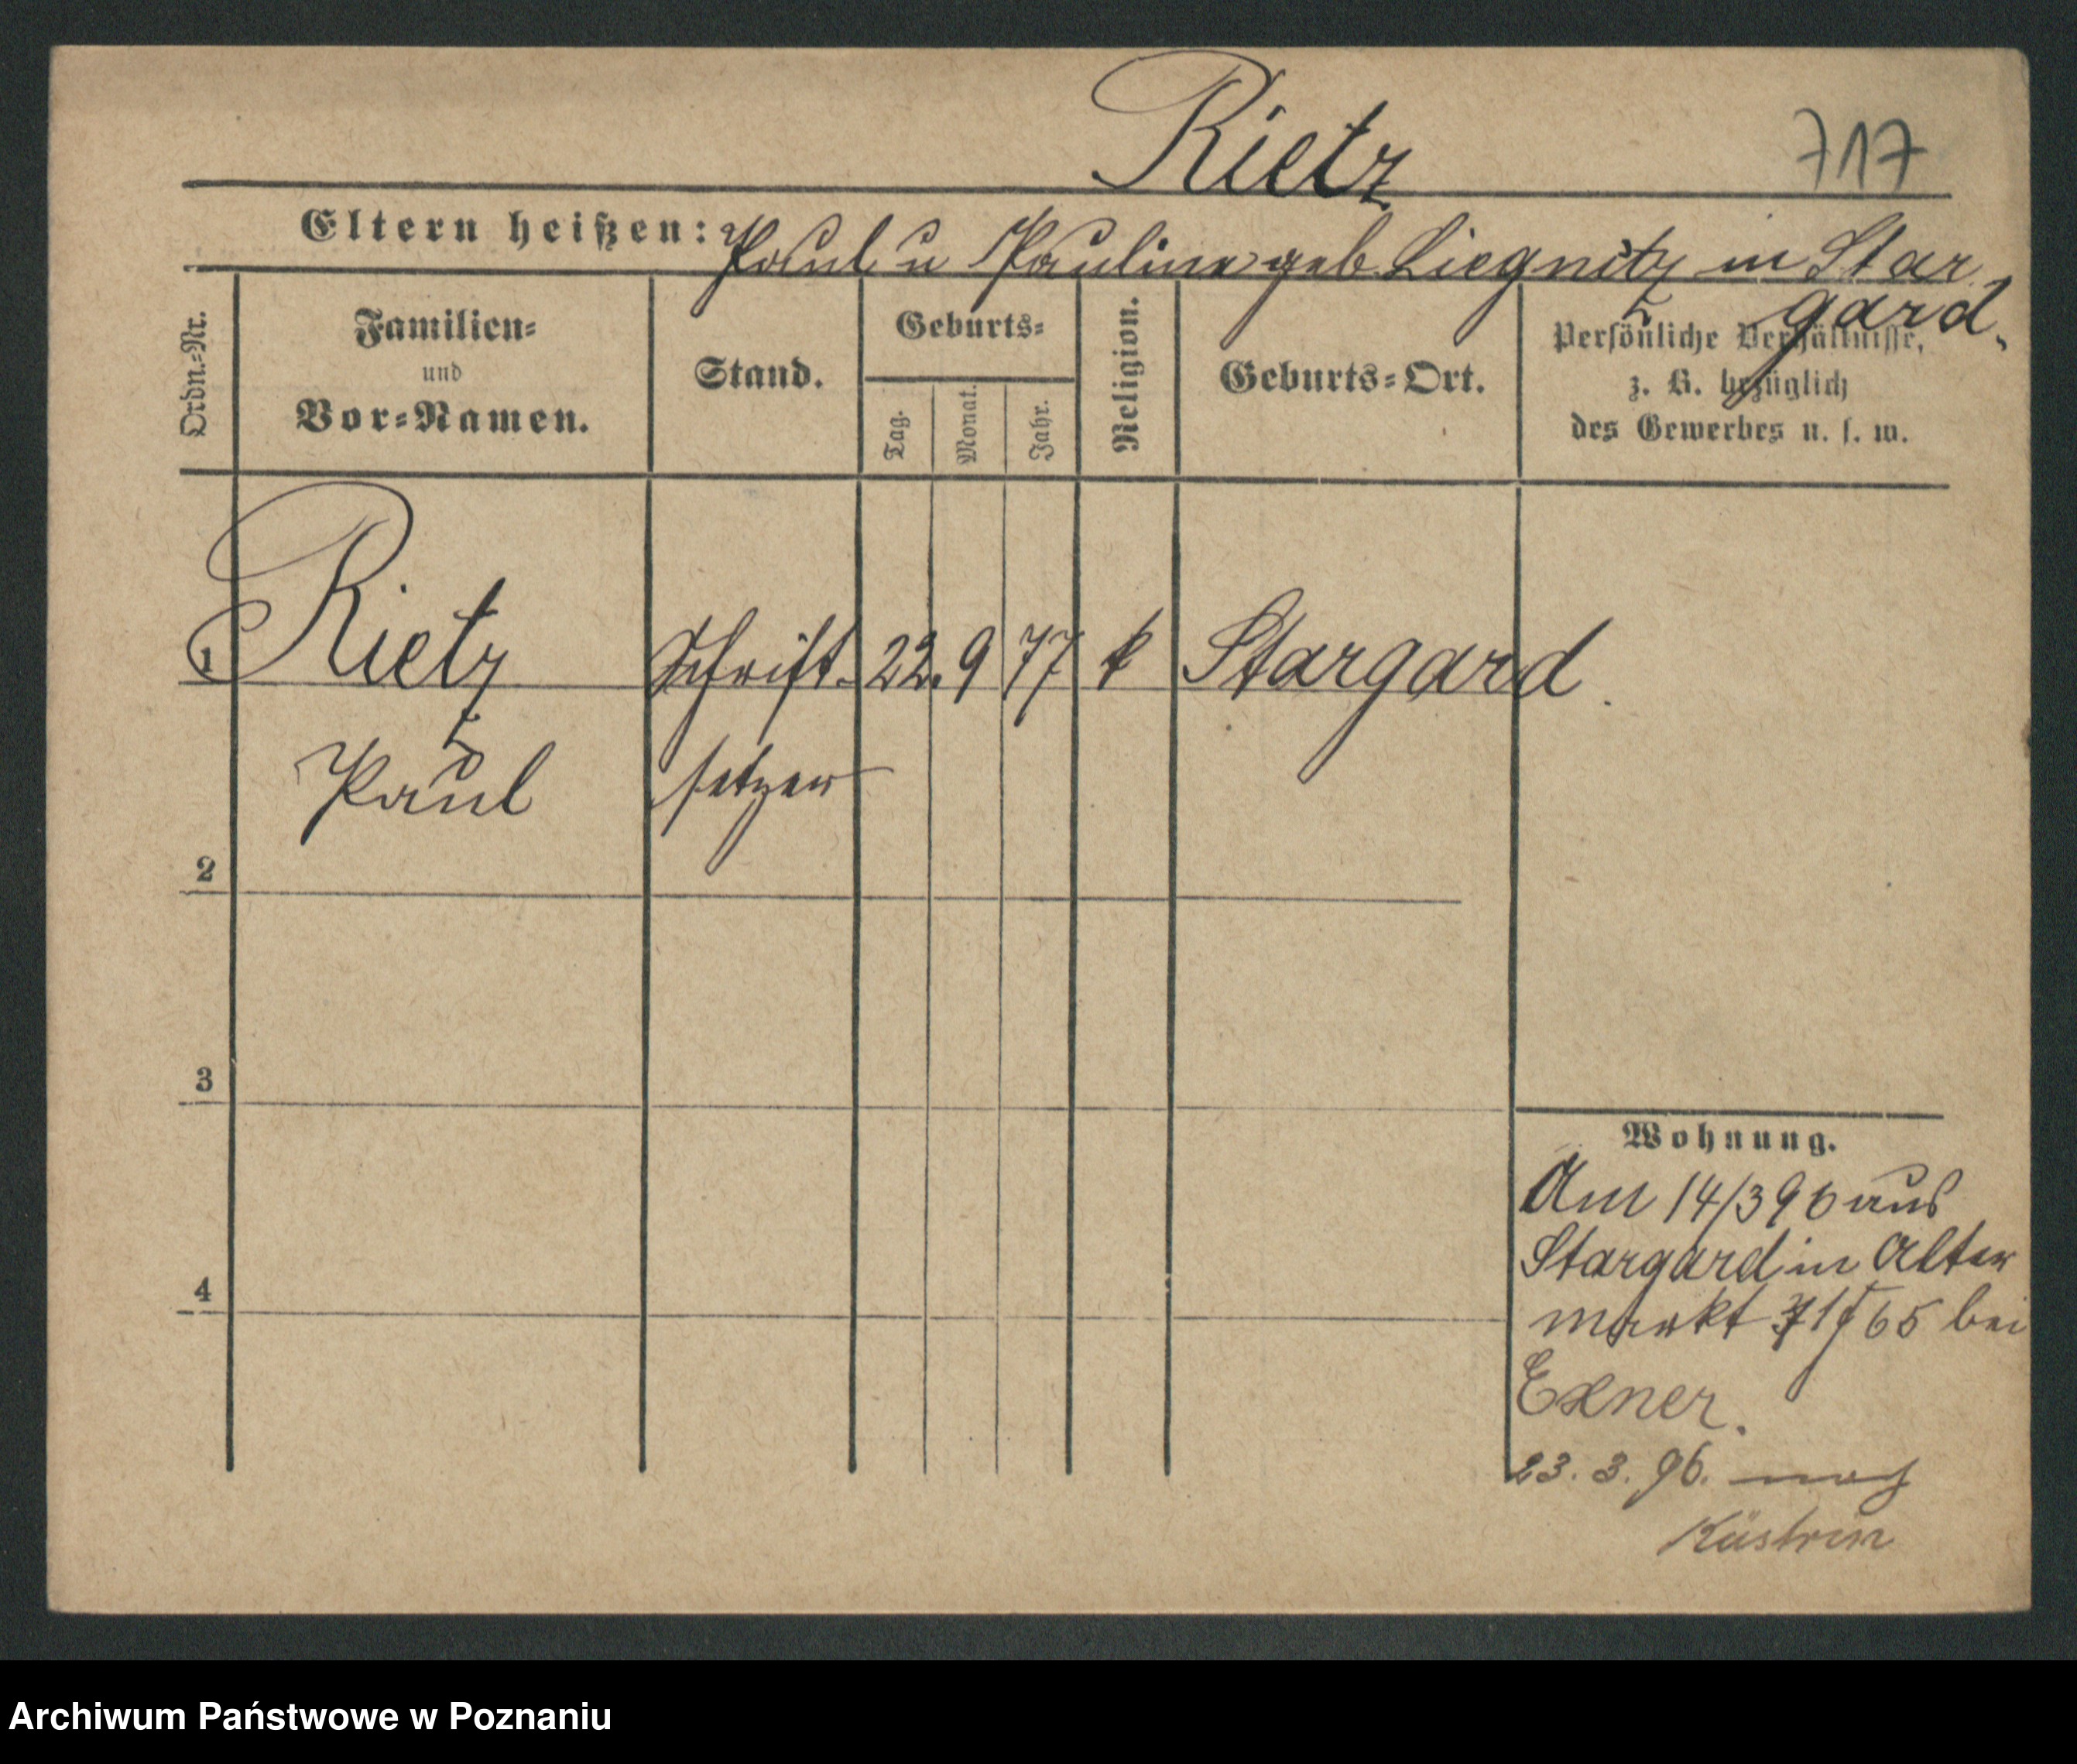 Rietz
717
Eltern heißen: Paul u Pauline geb Liegnitz in Star
gard
Ordn.-Nr.
Familien-
und
Vor-Namen.
Stand.
Geburts-
Tag.
Monat.
Jahr.
Religion.
Geburts-Ort.
Persönliche Verhältnisse,
z. B. bezüglich
des Gewerbes u. s. w.
1 Rietz Schrift- 22. 9 77 k Stargard
Paul setzer
2
3
4
Wohnung.
Am 14/3 96 aus
Stargard in Alter
markt 65 bei
Exner.
23. 3. 96. nach
Küstrin
Archiwum Państwowe w Poznaniu